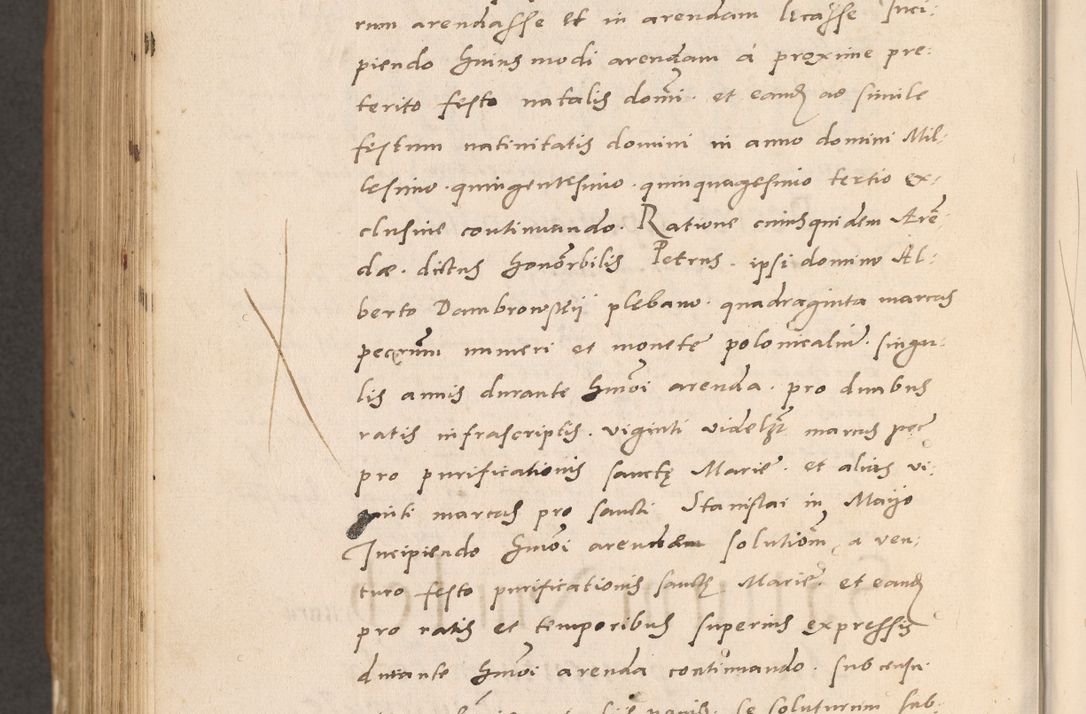 rum arendasse et in arendam locasse Inci:
piendo huiusmodi arendam á proxime pre:
terito festo natalis domi. et eandem ad simile
festum natiuitatis domini in anno domini Mil-
lesimo. quingentesimo. quinquagesimo tertio ex:
clusiue continuando. Ratione cuiusquidem Aren
dae. dictus honorbilis Petrus. ipsi domino Al:
berto Dambrowskij plebano. quadraginta marcas
pecunm numeri et monete polonicalium. singu:
lis annis durante hmoi arenda. pro duabus
ratis infrascriptis. viginti videlzt marcas pec
pro purificationis sanctę Marie. et alias vi:
ginti marcas pro sancti Stanislai in Maijo
Incipiendo hmoi arendam solutiom, a ven:
turo festo purificationis sancte Marie. et eand
pro ratis et temporibus superius expressis
durante hmoi arenda continuando. sub censu.
se soluturum sub: